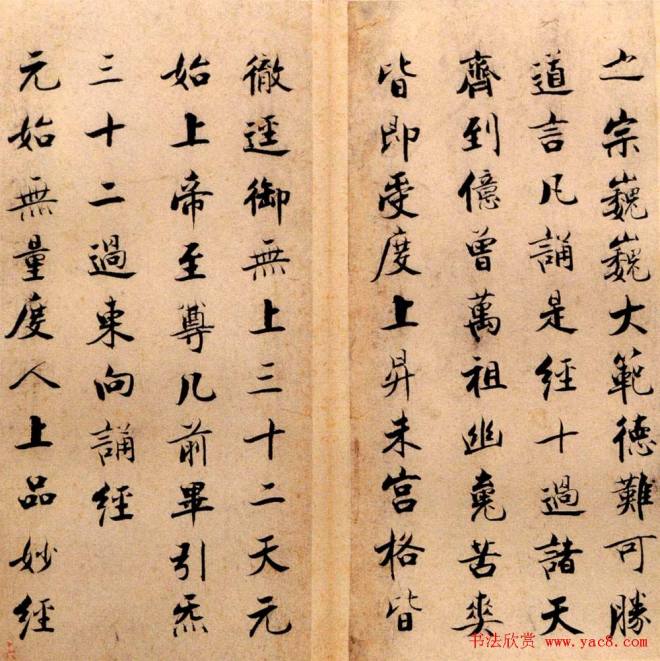 之宗巍巍大範德難可勝
道言凡誦是經十過諸天
齊到億曾萬祖幽䰟苦爽
皆即受度上昇朱宮格皆
徹逕御無上三十二天元
始上帝至尊几前畢引炁
三十二過東向誦經
元始無量度人上品妙經
书法欣赏 www.yac8.com